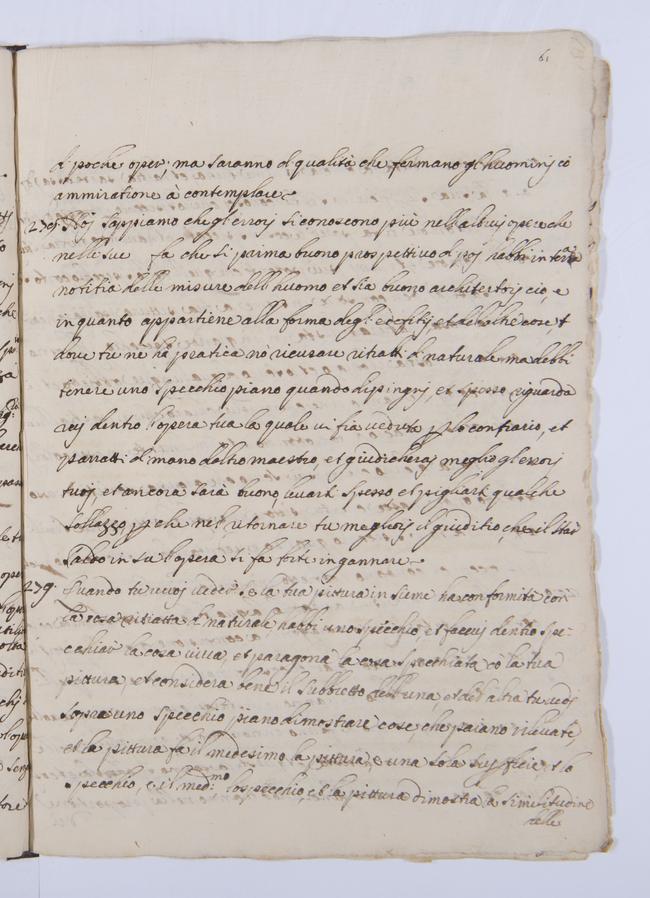 61
di poche opere, ma saranno di qualità che fermano gl'huominij cō
ammiratione à contemplare
279 Noj sappiamo che gl'errorj si conoscono più nell'altruj opere che
nelle sue fa che sij prima buono prospettivo di poj habbi intera
notitia delle misure dell'huomo et sia buono architetto, cio, e
in quanto appartiene alla forma degl' edifitij et dell'altre cose et
dove tu ne hà pratica nō ricusare ritrattj di naturale ma debbi
tenere uno specchio piano quando dipingrj, et spesso riguarda
raj dentro l'opera tua la quale vi fia veduta p lo contrario, et
parratti di mano d'altro maestro, et giudicheraj meglio gl'errorj
tuoj, et ancora sarà buono levarti spesso et pigliarti qualche
sollazzo p che nel ritornare tu megliorj il giuditio, che il star
saldo in su l'opera si fa forte ingannare
279 Quando tu vuoj veder se la tua pittura insieme ha conformità con
la cosa ritratta di naturale habbi uno specchio, et faccvj dentro spe-
cchiar la cosa viva, et paragona la cosa specchiata cō la tua
pittura, et considera bene il subbietto dell'una, et dell'altra tu vedj
sopra uno specchio piano dimostrare cose, che paiano rilevate,
et la pittura fa il medesimo la pittura, è una sola superficie, et lo
specchio, è il med:mo lo specchio, e la pittura dimostra la similitudine
delle